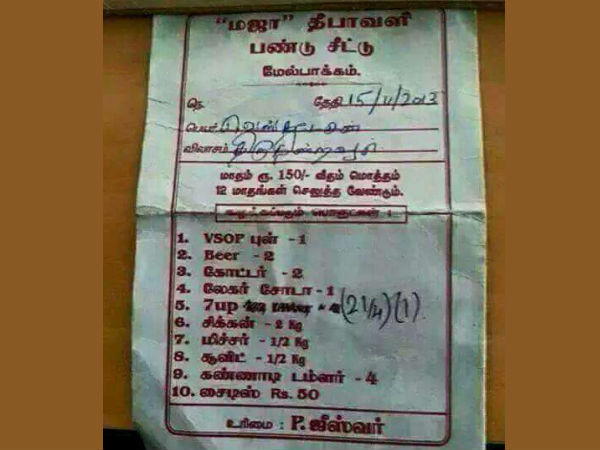 "மஜா" தீபாவளி
பண்டு சீட்டு
மேல்பாக்கம்.
தேதி 15/4/2013
பெயர்
விலாசம்
மாதம் ரூ. 150/- வீதம் மொத்தம்
12 மாதங்கள் செலுத்த வேண்டும்.
வழங்கப்படும் பொருட்கள் :
1. VSOP புள் - 1
2. Beer - 2
3. கோட்டர் - 2
4. லேகர் சோடா - 1
5. 7up (2 1/4) (1)
6. சிக்கன் - 2 Kg
7. மிச்சர் - 1/2 Kg
8. சூவிட் - 1/2 Kg
9. கண்ணாடி டம்ளர் - 4
10. சைடிஸ் Rs. 50
உரிமை : P. ஜீஸ்வர்